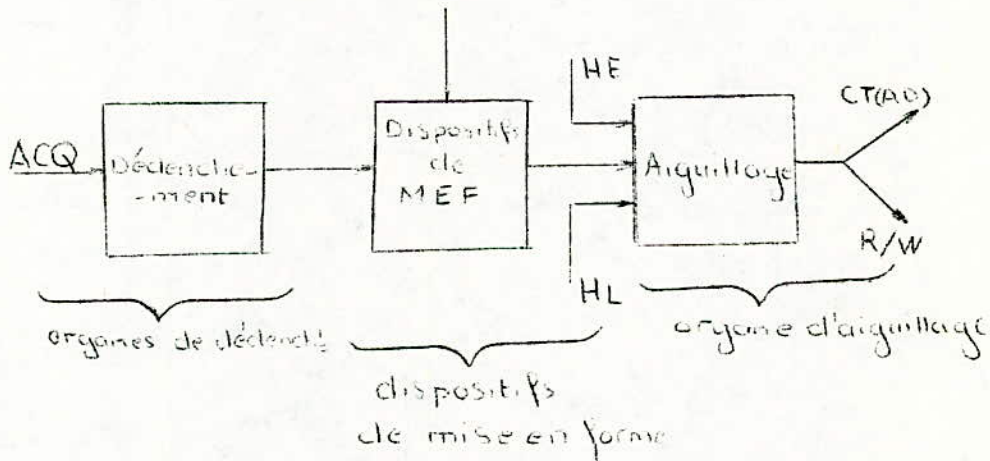 ACQ
Déclenche-
-ment
Dispositifs
de
MEF
HE
HL
Aiguillage
CT(AD)
R/W
organes de déclencht
dispositifs
de mise en forme
organe d'aiguillage